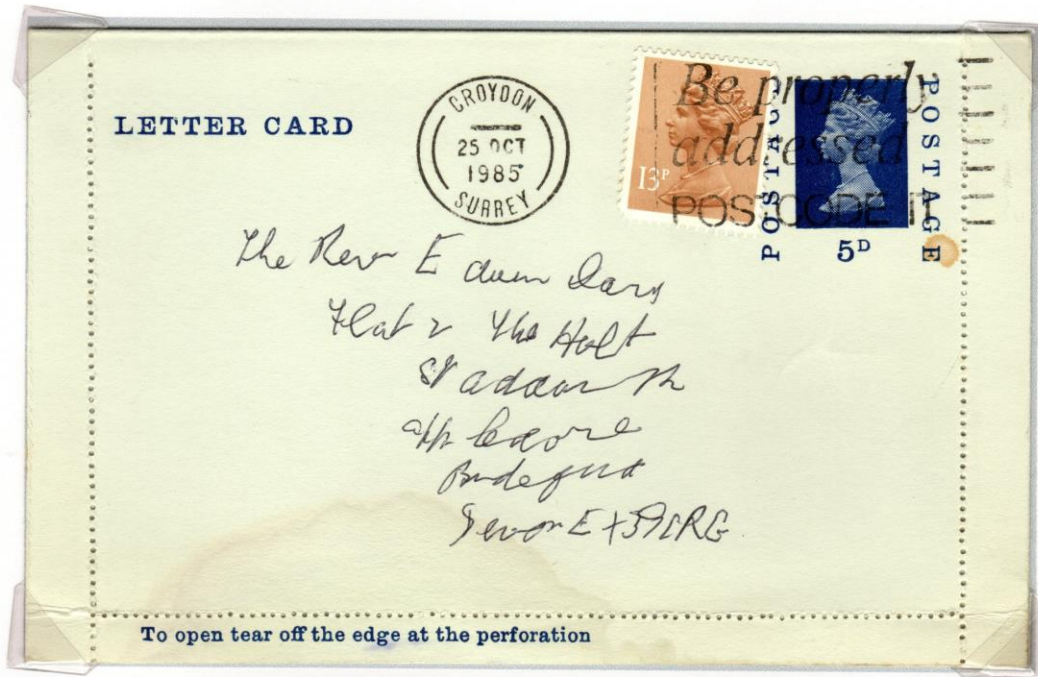 LETTER CARD
CROYDON
25 OCT
1985
SURREY
13P
Be properly
addressed
POSTCODE IT
POSTAGE
POSTAGE
5D
The Rev Edwin
Flat 2 The Holt
Devon EX39 1RG
To open tear off the edge at the perforation